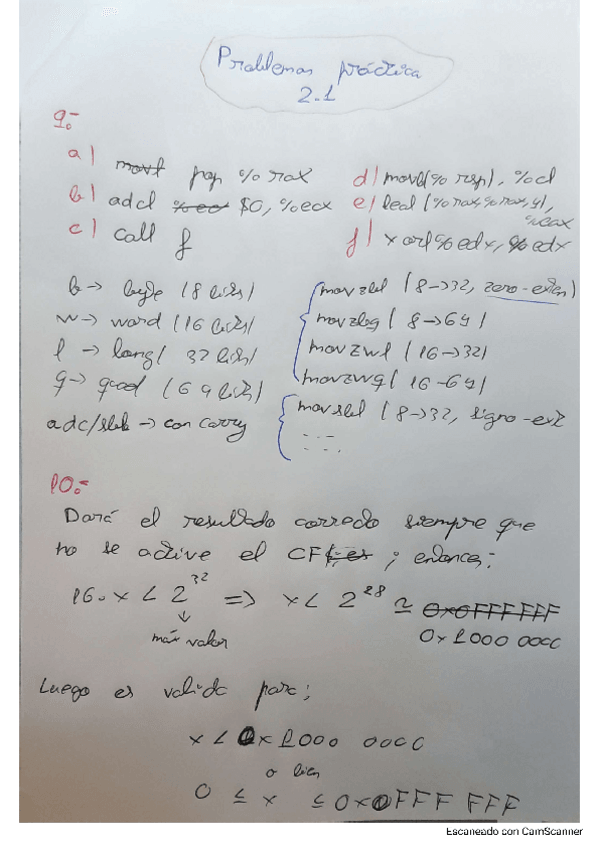 Problemas práctica
2.1
9.-
a) movl pop %rax
b) adcl %ec $0, %ecx
c) call f
d) movb (%rsp), %cl
e) leal (%rax,%rax,4), %eax
f) xorl %edx, %edx
b -> byte (8 bits)
w -> word (16 bits)
l -> long ( 32 bits)
q -> quad (64 bits)
adc/sbb -> con carry
movzbl (8->32, zero-exten)
movzbq (8->64)
movzwl (16->32)
movzwq (16-64)
movsbl (8->32, signo-ext
10.-
Dará el resultado correcto siempre que
no se active el CF ; entonces:
16·x < 2^32 => x < 2^28 ≃ 0x0FFF FFF
máx valor
0x1000 0000
Luego es valido para:
x < 0x1000 0000
o bien
0 ≤ x ≤ 0x0FFF FFF
Escaneado con CamScanner